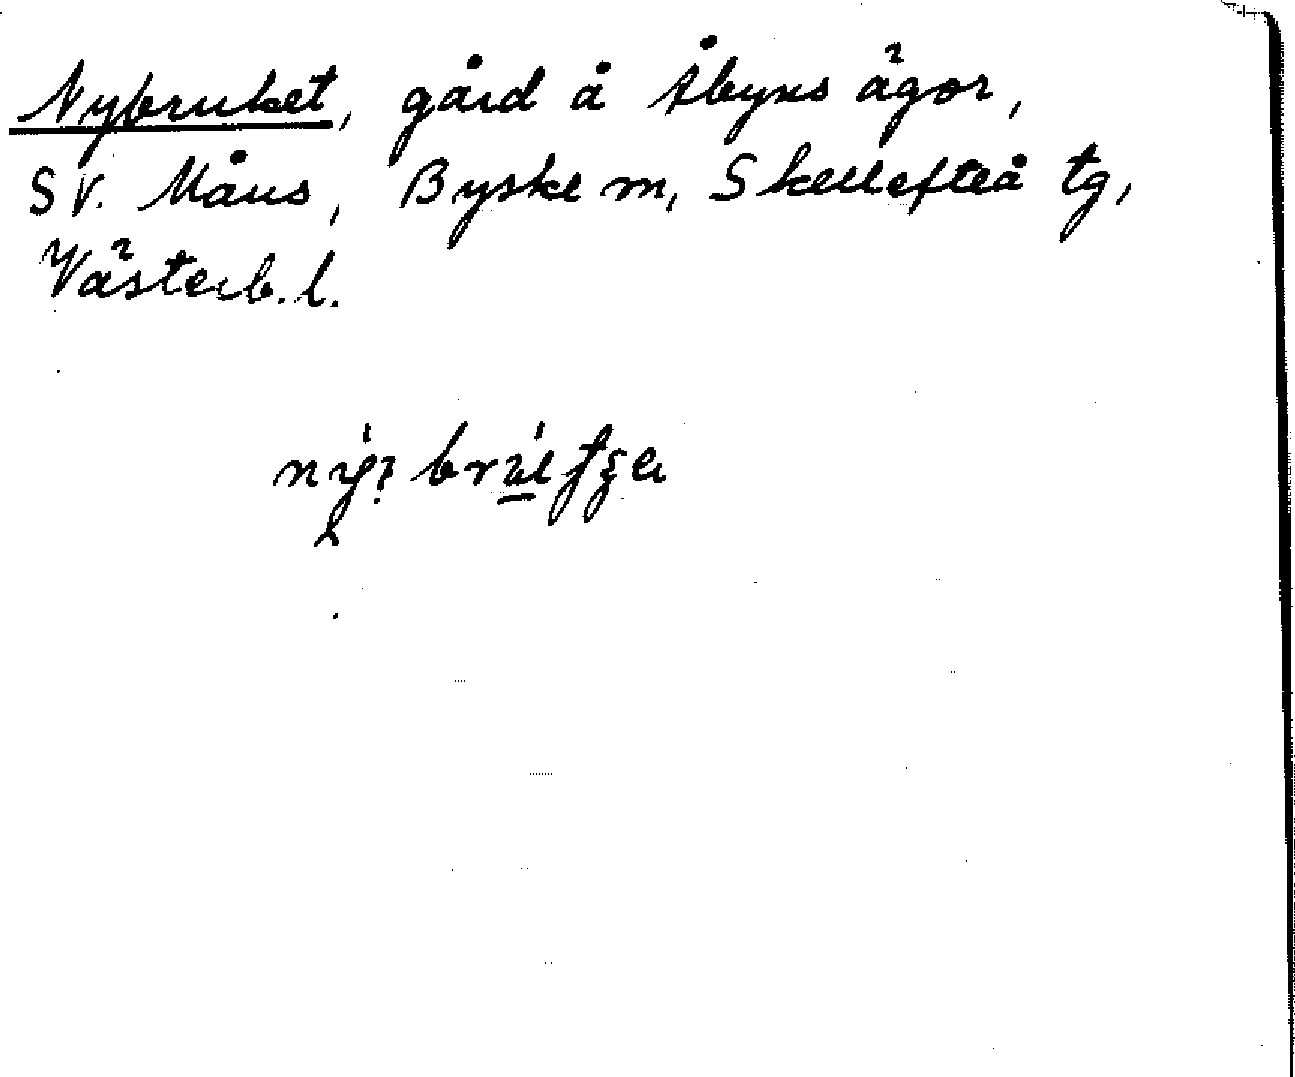 Nybruket, gård å Åbyns ägor,
SV. Måns, Byske m, Skellefteå tg,
Västerb. l.